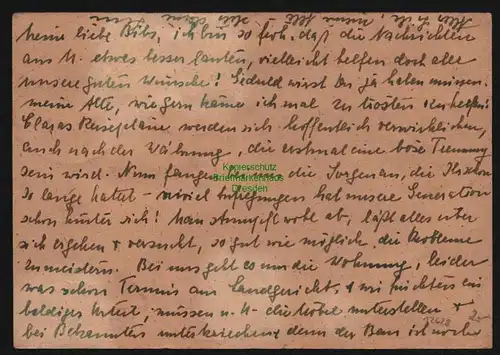 meine liebe Bibs, ich bin so froh, daß die Nachrichten
aus M. etwas besser lauten, vielleicht helfen doch alle
unsere guten Wünsche! Geduld wirst Du ja haben müssen,
meine Alte, wie gern käme ich mal zu trösten u. helfen!
Claras Reisepläne werden sich hoffentlich verwirklichen,
auch nach der Währung, die erstmal eine böse Trennung
sein wird. Nun fangen die Sorgen an, die Ihr schon
so lange hattet. wieviel hat unsere Generation
schon hinter sich! Man stumpft wohl ab, läßt alles über
sich ergehen + versucht, so gut wie möglich, die Probleme
zu meistern. Bei uns geht es um die Wohnung, leider
war schon Termin am Landgericht, + wir fürchten ein
baldiges Urteil, müssen u. U. die Möbel unterstellen +
bei Bekannten unterkriechen, denn der Bau ist noch
Kopierschutz
Briefmarkenhaus
Dresden